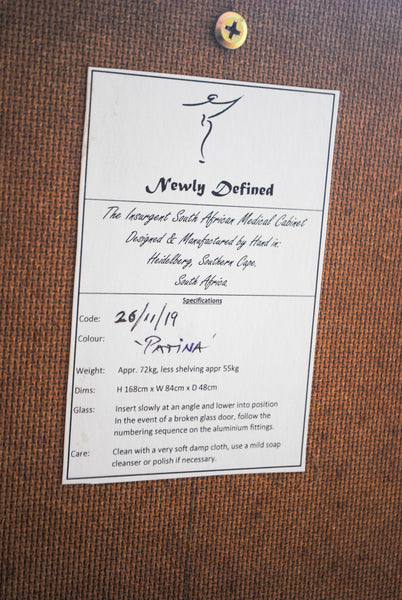 Newly Defined
The Insurgent South African Medical Cabinet
Designed & Manufactured by Hand in:
Heidelberg, Southern Cape.
South Africa
Specifications
Code: 26/11/19
Colour: 'PATINA'
Weight: Appr. 72kg, less shelving appr 55kg
Dims: H 168cm x W 84cm x D 48cm
Glass: Insert slowly at an angle and lower into position
In the event of a broken glass door, follow the
numbering sequence on the aluminium fittings.
Care: Clean with a very soft damp cloth, use a mild soap
cleanser or polish if necessary.